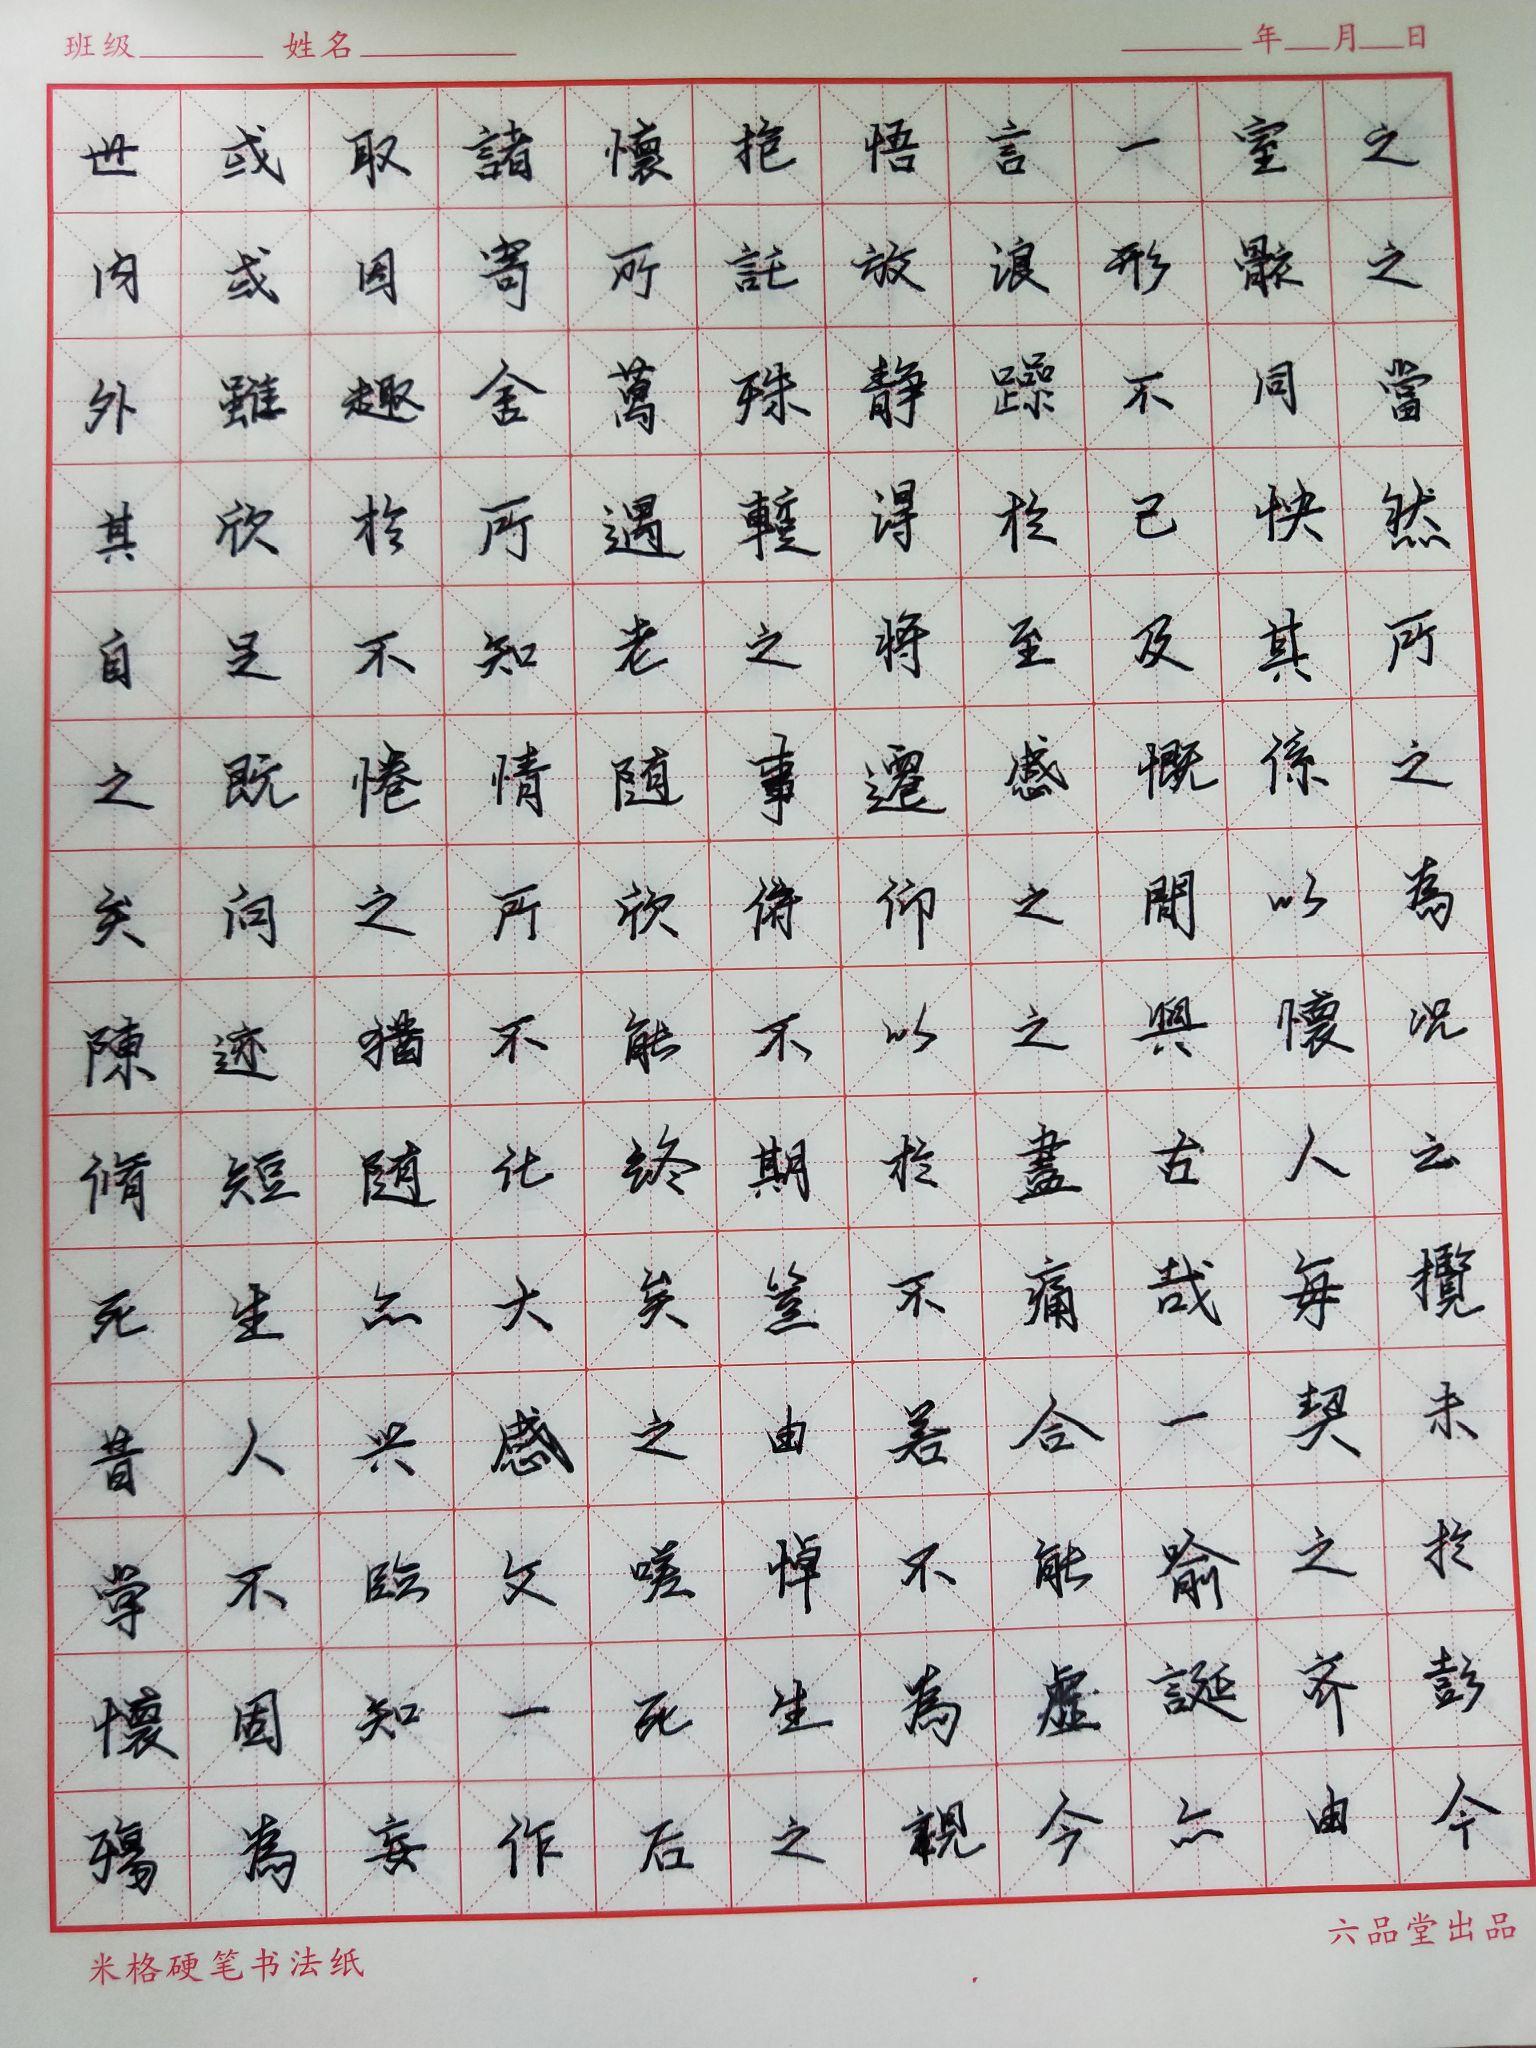 班级 姓名 年 月 日
世或取諸懷抱悟言一室之
内或因寄所託放浪形骸之
外雖趣舍萬殊静躁不同當
其欣於所遇暫得於己快然
自足不知老之将至及其所
之既惓情随事遷感慨係之
矣向之所欣俯仰之間以為
陳迹猶不能不以之興懷况
脩短随化終期於盡古人云
死生亦大矣豈不痛哉每攬
昔人兴感之由若合一契未
嘗不臨文嗟悼不能喻之於
懷固知一死生為虚誕齐彭
殤為妄作后之視今亦由今
米格硬笔书法纸 六品堂出品